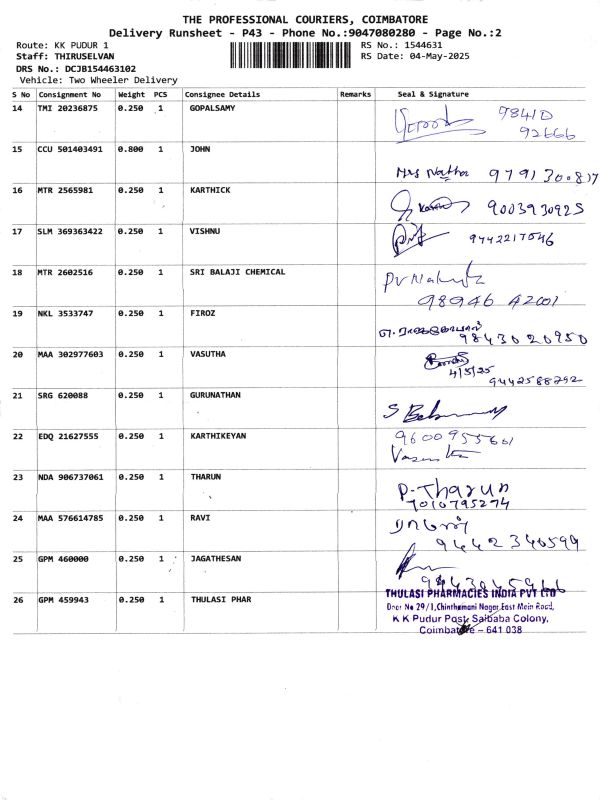 THE PROFESSIONAL COURIERS, COIMBATORE
Delivery Runsheet - P43 - Phone No.:9047080280 - Page No.:2
Route: KK PUDUR 1 RS No.: 1544631
Staff: THIRUSELVAN RS Date: 04-May-2025
DRS No.: DCJB154463102
Vehicle: Two Wheeler Delivery
S No Consignment No Weight PCS Consignee Details Remarks Seal & Signature
14 TMI 20236875 0.250 1 GOPALSAMY
98410
92666
15 CCU 501403491 0.800 1 JOHN
Mrs Natha 979130.817
16 MTR 2565981 0.250 1 KARTHICK
9003930925
17 SLM 369363422 0.250 1 VISHNU
9442217546
18 MTR 2602516 0.250 1 SRI BALAJI CHEMICAL
98946 42001
19 NKL 3533747 0.250 1 FIROZ
9843020950
20 MAA 302977603 0.250 1 VASUTHA
4/5/25
9442588292
21 SRG 620088 0.250 1 GURUNATHAN
22 EDQ 21627555 0.250 1 KARTHIKEYAN
9600955661
23 NDA 906737061 0.250 1 THARUN
P-Tharun
7010795274
24 MAA 576614785 0.250 1 RAVI
9442340599
25 GPM 460000 0.250 1 JAGATHESAN
26 GPM 459943 0.250 1 THULASI PHAR
THULASI PHARMACIES INDIA PVT LTD
Door No 29/1, Chinthamani Nagar, East Main Road,
K K Pudur Post, Saibaba Colony,
Coimbatore – 641 038